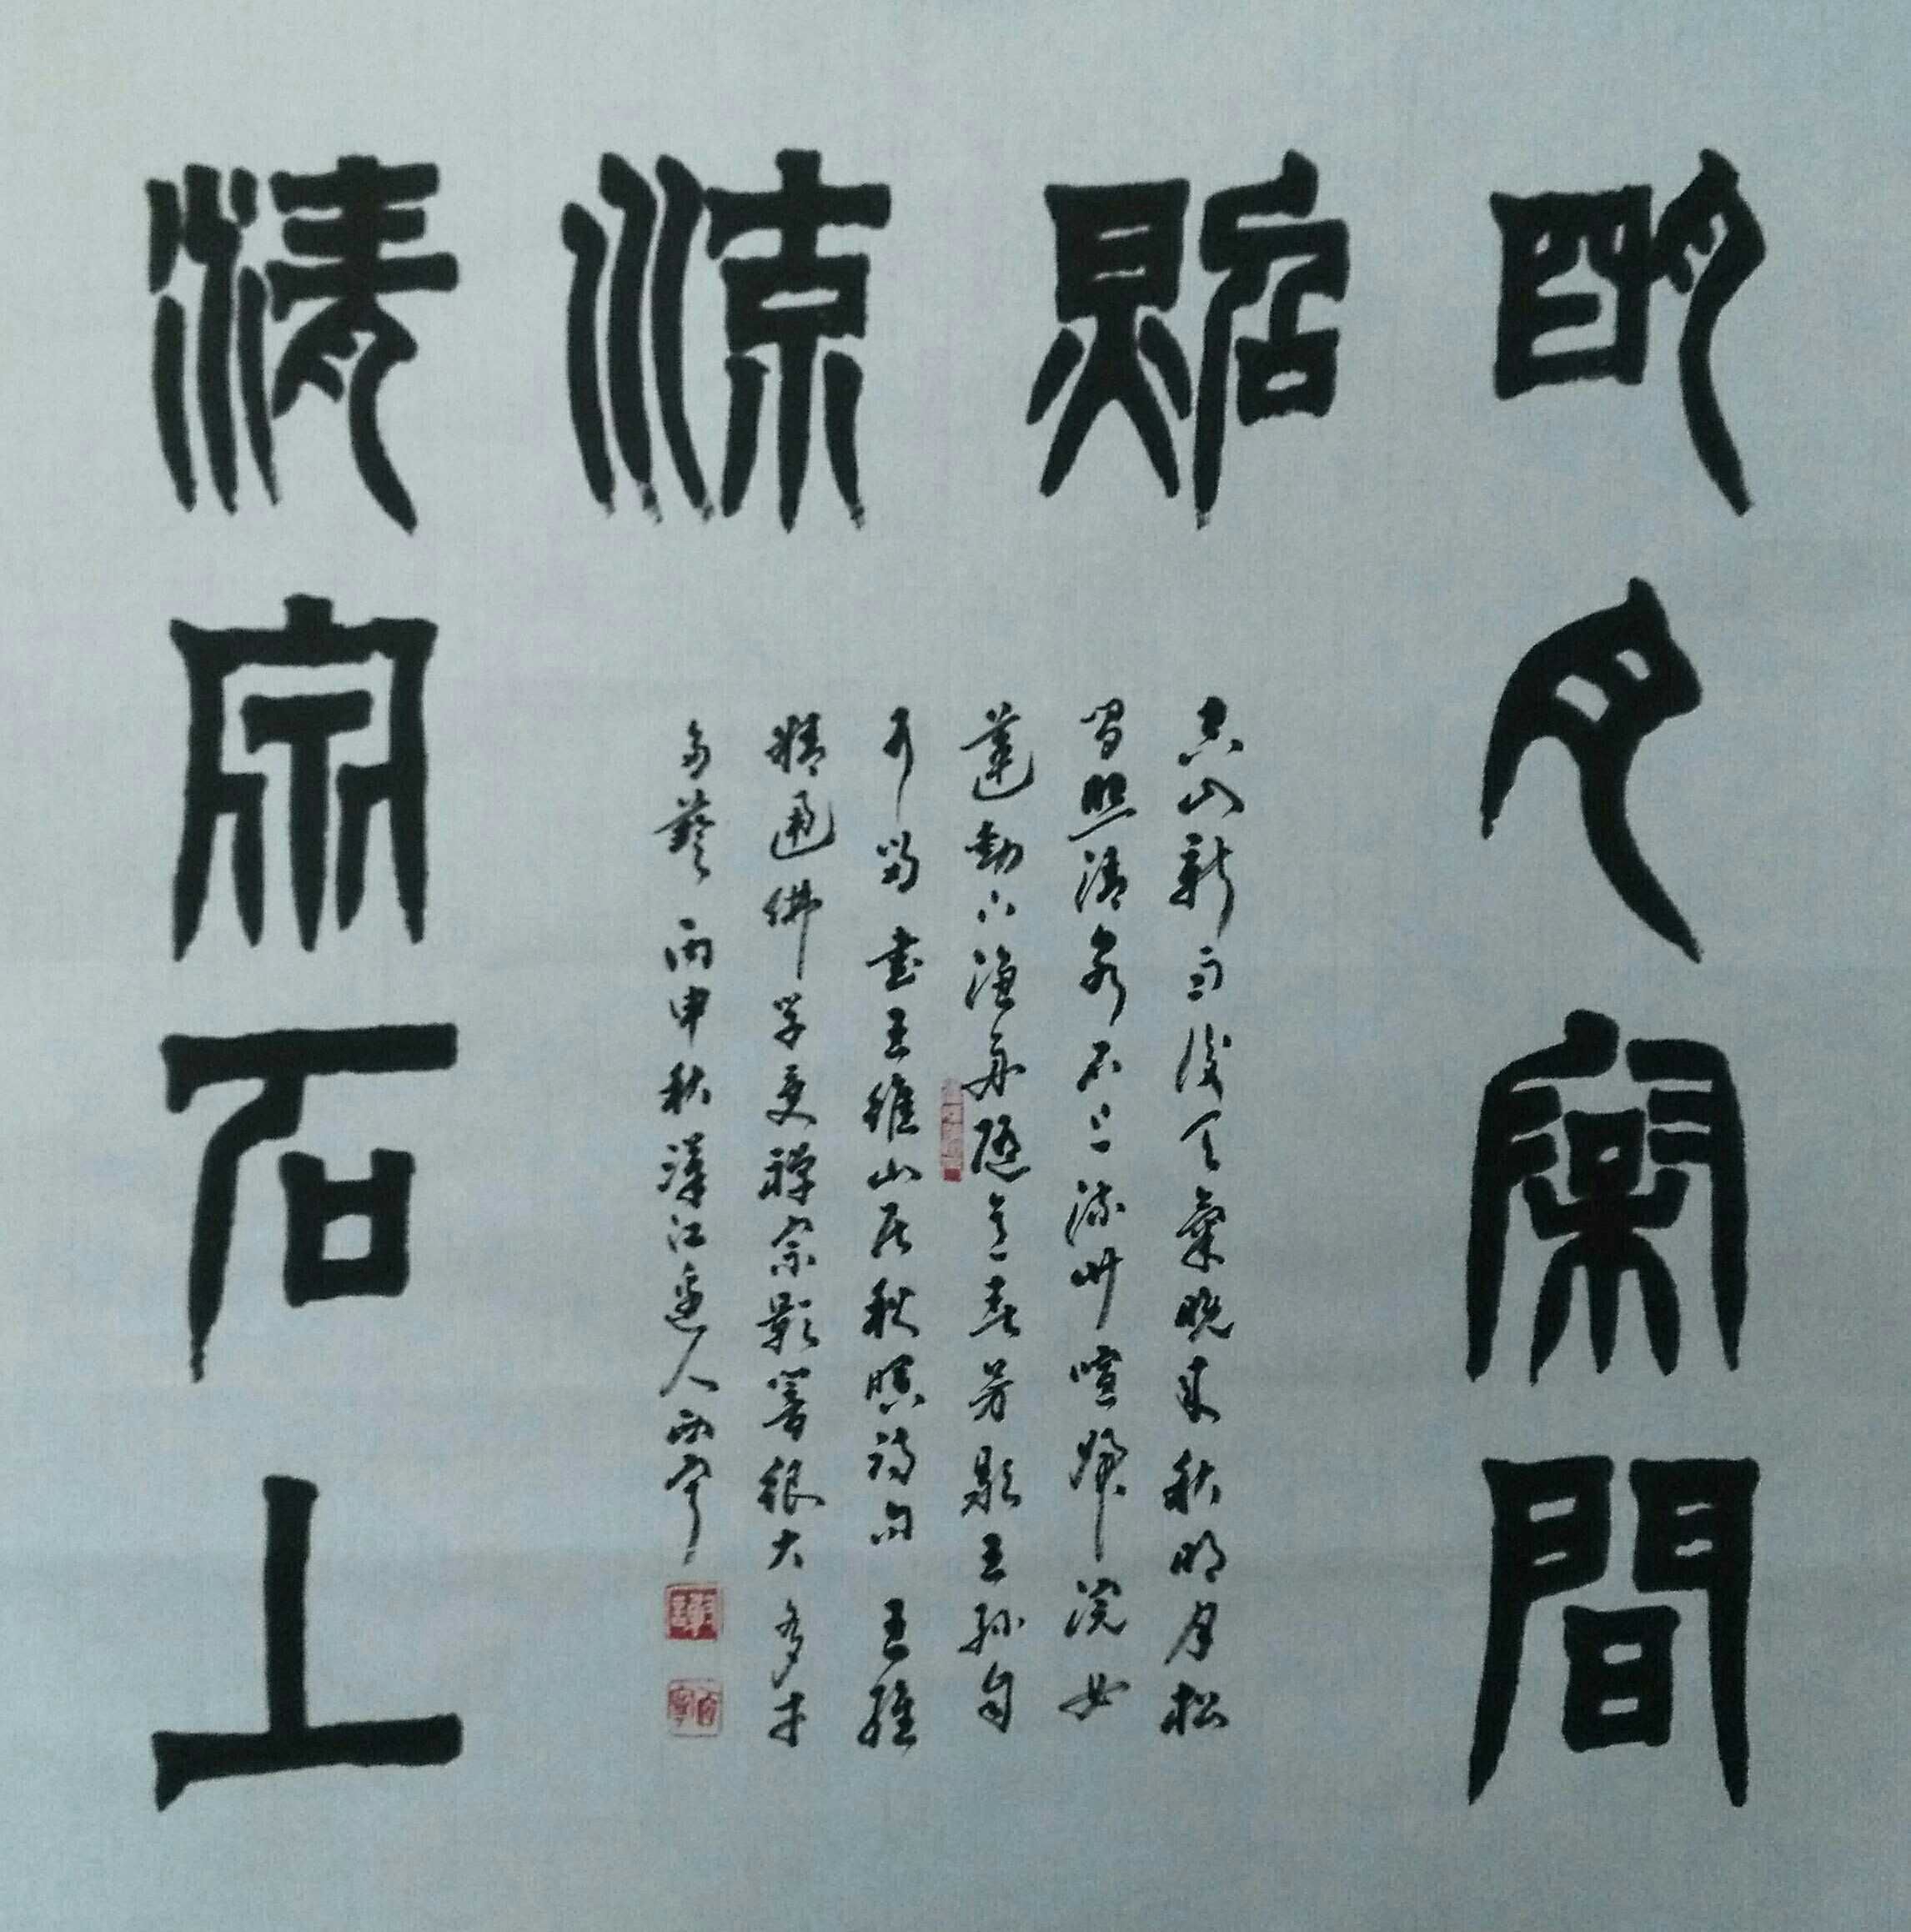 明月松間
照
清泉石上
流
空山新雨後天氣晚來秋明月松
間照清泉石上流竹喧歸浣女
蓮動下漁舟隨意春芳歇王孫自
可留 書王維山居秋暝詩句 王維
精通佛学更禪宗影響很大多才
多藝 丙申秋漢江逸人